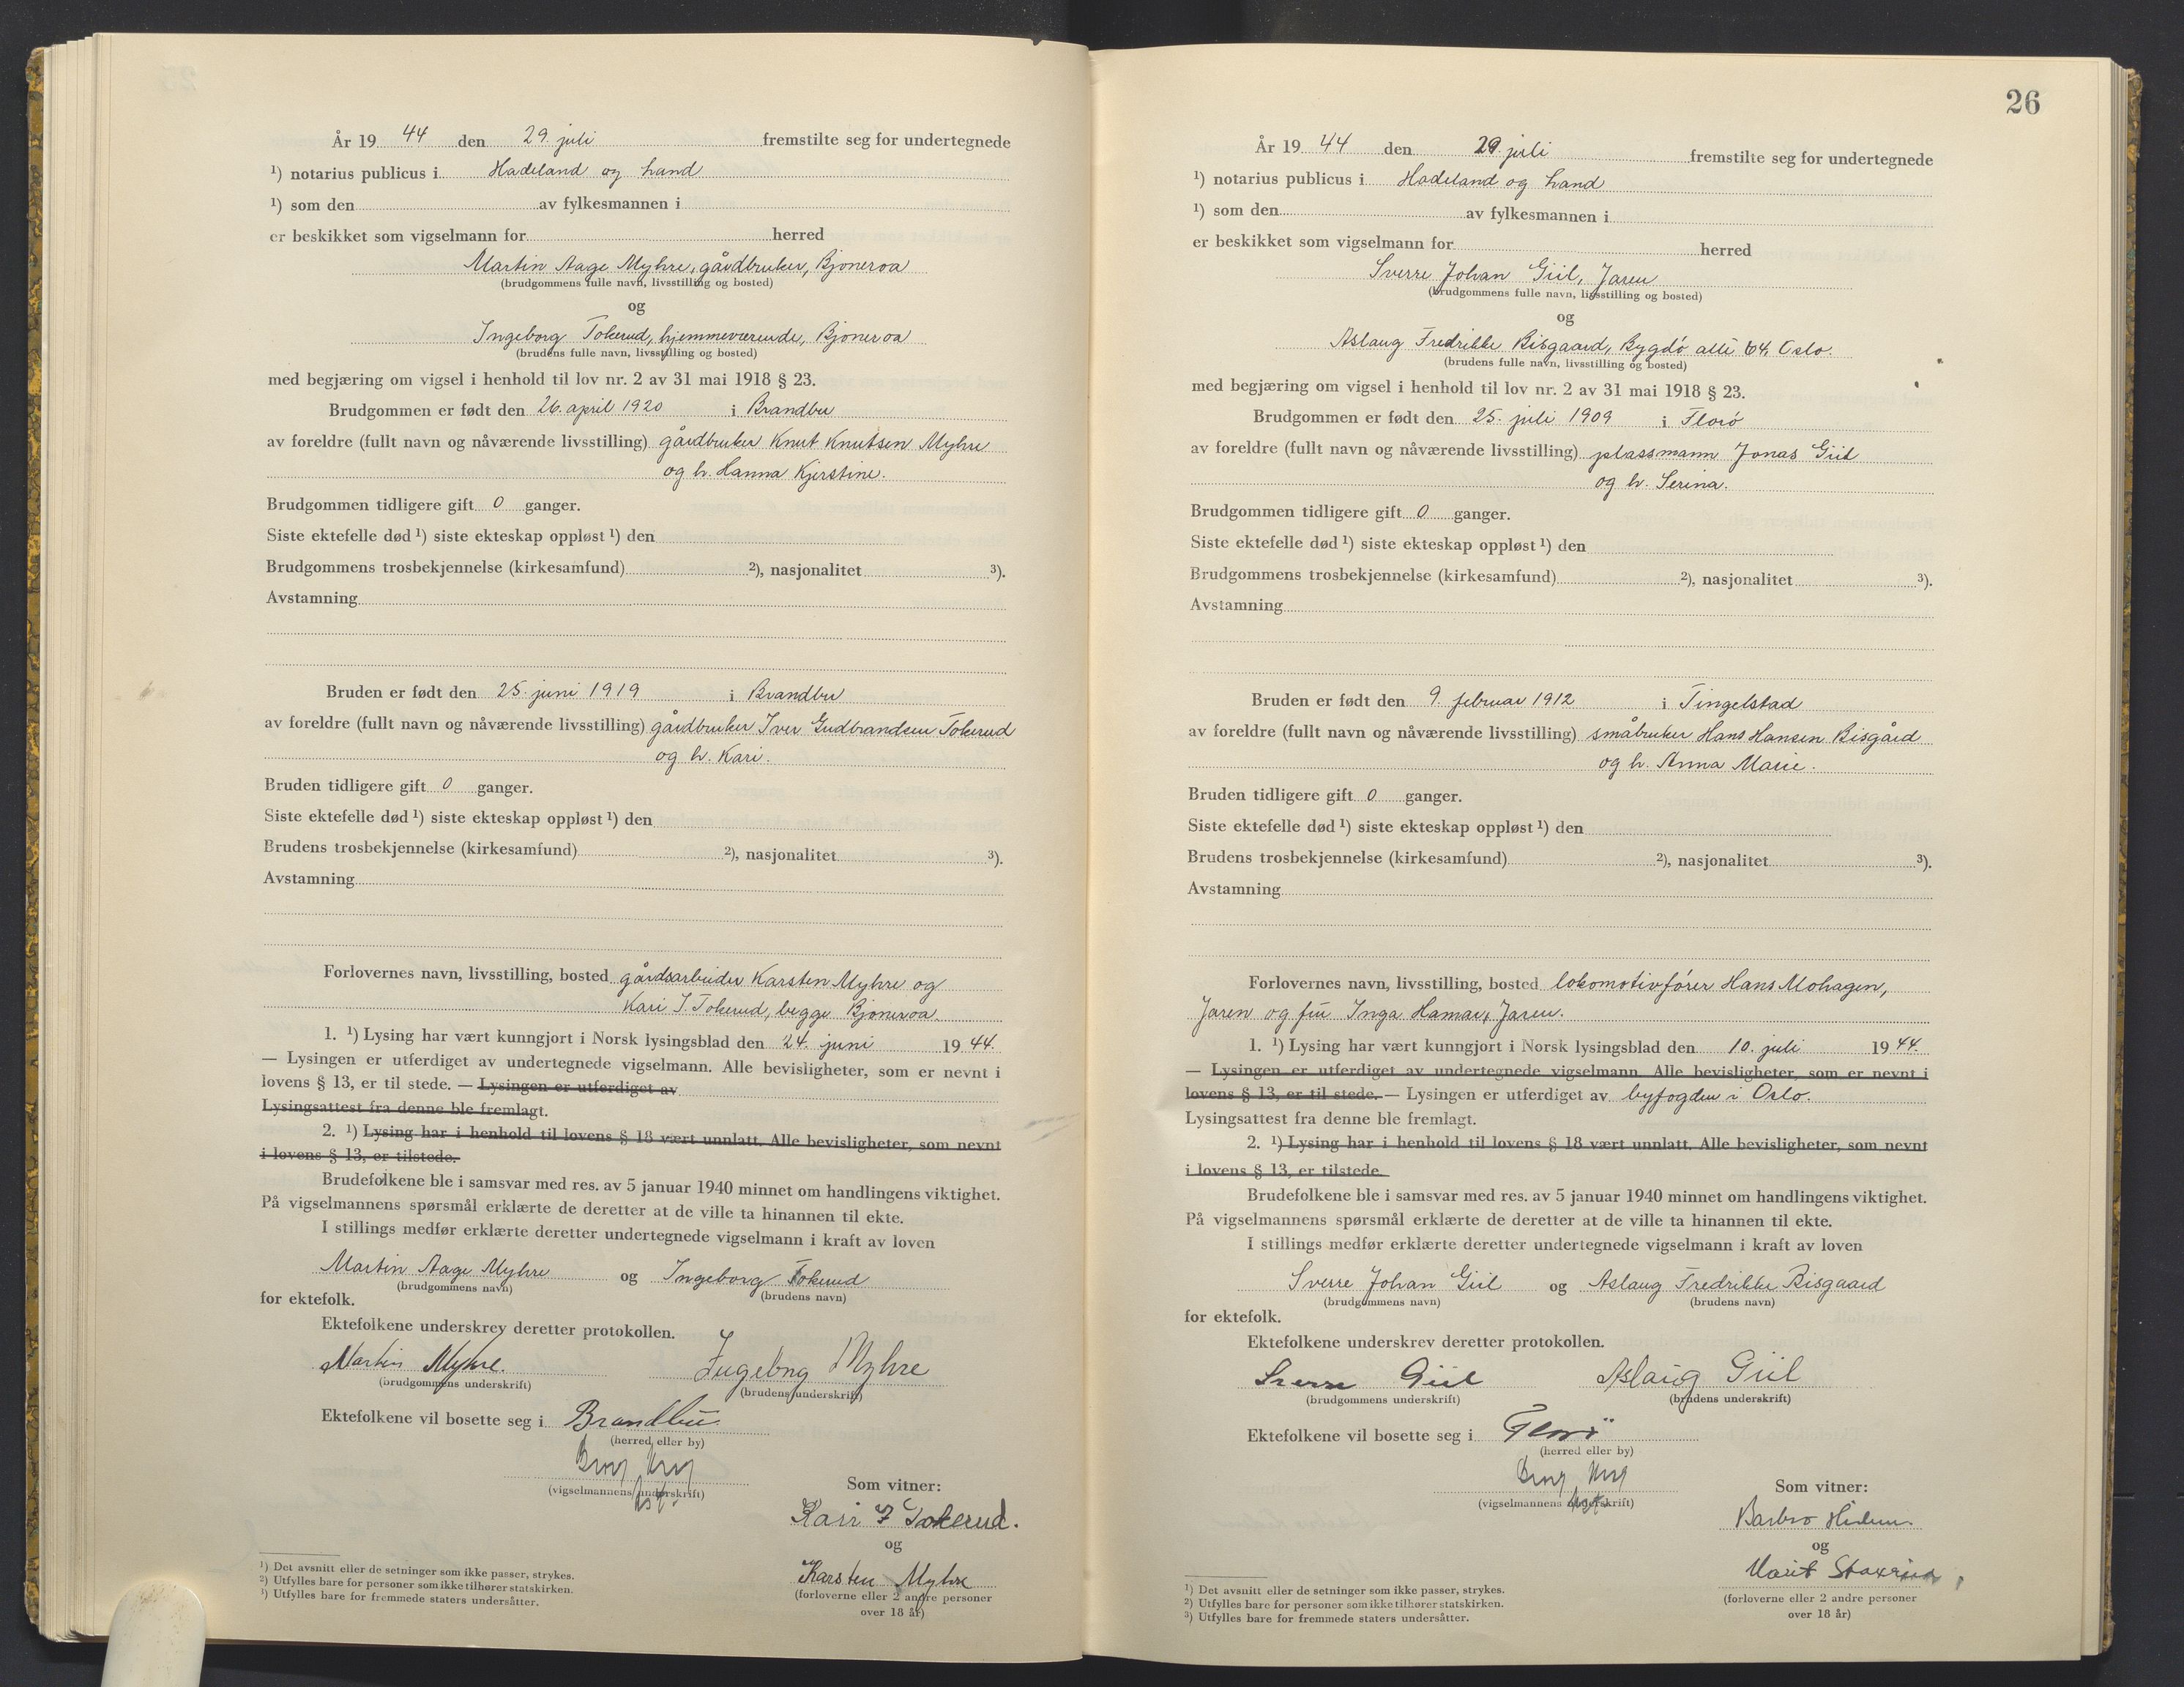 År 19 44 den 29. juli fremstilte seg for undertegnede
¹) notarius publicus i Hadeland og Land
¹) som den av fylkesmannen i
er beskikket som vigselmann for herred
Martin Aage Myhre, gårdbruker, Bjoneroa
(brudgommens fulle navn, livsstilling og bosted)
og
Ingeborg Tokerud, hjemmeværende, Bjoneroa
(brudens fulle navn, livsstilling og bosted)
med begjæring om vigsel i henhold til lov nr. 2 av 31 mai 1918 § 23.
Brudgommen er født den 26. april 1920 i Brandbu
av foreldre (fullt navn og nåværende livsstilling) gårdbruker Knut Knutsen Myhre
og h. Hanna Kjerstine.
Brudgommen tidligere gift 0 ganger.
Siste ektefelle død ¹) siste ekteskap oppløst ¹) den
Brudgommens trosbekjennelse (kirkesamfund) ²), nasjonalitet ³).
Avstamning
Bruden er født den 25. juni 1919 i Brandbu
av foreldre (fullt navn og nåværende livsstilling) gårdbruker Iver Gudbrandsen Tokerud
og h. Kari.
Bruden tidligere gift 0 ganger.
Siste ektefelle død ¹) siste ekteskap oppløst ¹) den
Brudens trosbekjennelse (kirkesamfund) ²), nasjonalitet ³).
Avstamning
Forlovernes navn, livsstilling, bosted gårdsarbeider Karsten Myhre og
Kari I. Tokerud, begge Bjoneroa.
1. ¹) Lysing har vært kunngjort i Norsk lysingsblad den 24. juni 19 44.
— Lysingen er utferdiget av undertegnede vigselmann. Alle bevisligheter, som er nevnt i
lovens § 13, er til stede. — Lysingen er utferdiget av
Lysingsattest fra denne ble fremlagt.
2. ¹) Lysing har i henhold til lovens § 18 vært unnlatt. Alle bevisligheter, som nevnt
i lovens § 13, er tilstede.
Brudefolkene ble i samsvar med res. av 5 januar 1940 minnet om handlingens viktighet.
På vigselmannens spørsmål erklærte de deretter at de ville ta hinannen til ekte.
I stillings medfør erklærte deretter undertegnede vigselmann i kraft av loven
Martin Aage Myhre og Ingeborg Tokerud
(brudgommens navn) (brudens navn)
for ektefolk.
Ektefolkene underskrev deretter protokollen.
Martin Myhre. Ingeborg Myhre
(brudgommens underskrift) (brudens underskrift)
Ektefolkene vil bosette seg i Brandbu
(herred eller by)
(vigselmannens underskrift)
Som vitner:
Kari I Tokerud.
og
Karsten Myhre
(forloverne eller 2 andre personer
over 18 år)
¹) Det avsnitt eller de setninger som ikke passer, strykes.
²) Utfylles bare for personer som ikke tilhører statskirken.
¹) Utfylles bare for fremmede staters undersåtter.
26
År 19 44 den 29. juli fremstilte seg for undertegnede
¹) notarius publicus i Hadeland og Land
¹) som den av fylkesmannen i
er beskikket som vigselmann for herred
Sverre Johan Giil, Jaren
(brudgommens fulle navn, livsstilling og bosted)
og
Aslaug Fredrikke Bisgaard, Bygdø allé 64, Oslo.
(brudens fulle navn, livsstilling og bosted)
med begjæring om vigsel i henhold til lov nr. 2 av 31 mai 1918 § 23.
Brudgommen er født den 25. juli 1909 i Florø
av foreldre (fullt navn og nåværende livsstilling) plassmann Jonas Giil
og h. Serina.
Brudgommen tidligere gift 0 ganger.
Siste ektefelle død ¹) siste ekteskap oppløst ¹) den
Brudgommens trosbekjennelse (kirkesamfund) ²), nasjonalitet ³).
Avstamning
Bruden er født den 9. februar 1912 i Tingelstad
av foreldre (fullt navn og nåværende livsstilling) småbruker Hans Hansen Bisgård
og h. Anna Marie.
Bruden tidligere gift 0 ganger.
Siste ektefelle død ¹) siste ekteskap oppløst ¹) den
Brudens trosbekjennelse (kirkesamfund) ²), nasjonalitet ³).
Avstamning
Forlovernes navn, livsstilling, bosted lokomotivfører Hans Mohagen,
Jaren og fru Inga Hamar, Jaren.
1. ¹) Lysing har vært kunngjort i Norsk lysingsblad den 10. juli 19 44.
— Lysingen er utferdiget av undertegnede vigselmann. Alle bevisligheter, som er nevnt i
lovens § 13, er til stede. — Lysingen er utferdiget av byfogden i Oslo.
Lysingsattest fra denne ble fremlagt.
2. ¹) Lysing har i henhold til lovens § 18 vært unnlatt. Alle bevisligheter, som nevnt
i lovens § 13, er tilstede.
Brudefolkene ble i samsvar med res. av 5 januar 1940 minnet om handlingens viktighet.
På vigselmannens spørsmål erklærte de deretter at de ville ta hinannen til ekte.
I stillings medfør erklærte deretter undertegnede vigselmann i kraft av loven
Sverre Johan Giil og Aslaug Fredrikke Bisgaard
(brudgommens navn) (brudens navn)
for ektefolk.
Ektefolkene underskrev deretter protokollen.
Sverre Giil Aslaug Giil
(brudgommens underskrift) (brudens underskrift)
Ektefolkene vil bosette seg i Florö
(herred eller by)
(vigselmannens underskrift)
Som vitner:
Barbro
og
Marit
(forloverne eller 2 andre personer
over 18 år)
¹) Det avsnitt eller de setninger som ikke passer, strykes.
²) Utfylles bare for personer som ikke tilhører statskirken.
³) Utfylles bare for fremmede staters undersåtter.